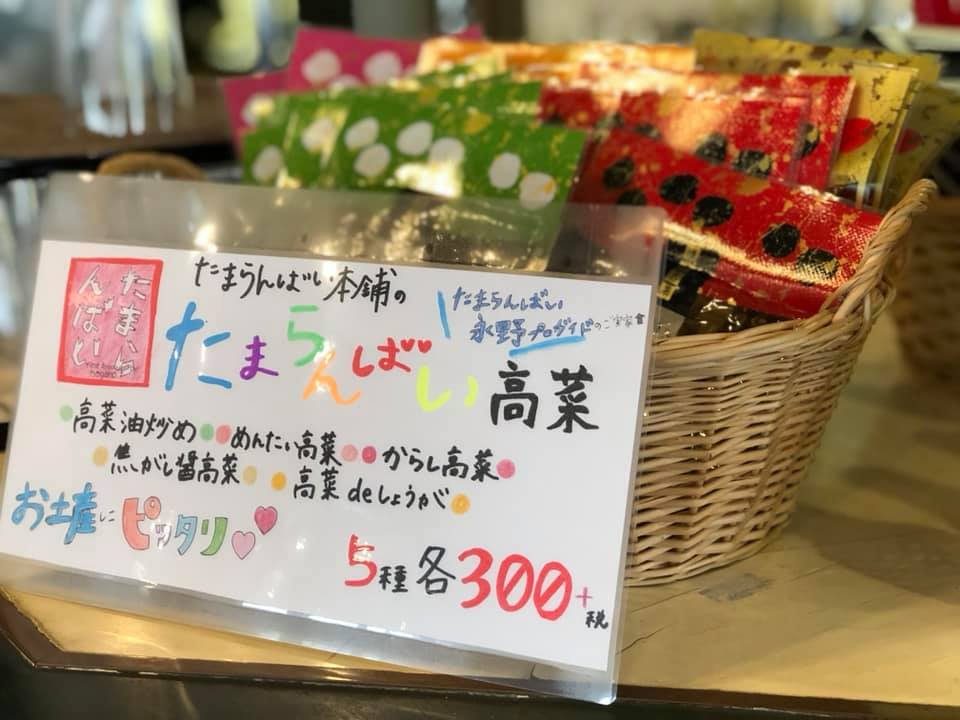 たまらんばい本舗の
たまらんばい
たまらんばい
永野プロダイドのご実家
たまらんばい高菜
高菜油炒め めんたい高菜 からし高菜
焦がし醤高菜 高菜deしょうが
お土産にピッタリ
5種各300+税